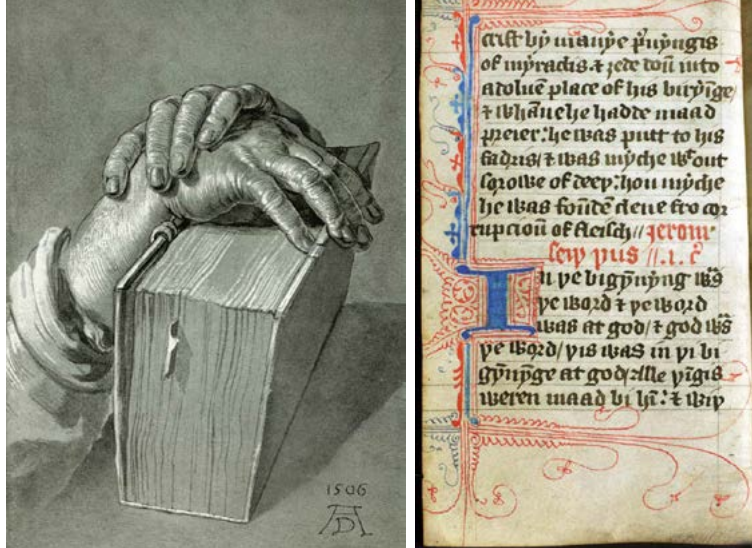 1506
AD
crist bẏ manẏe p̄uẏngis
of mẏraclis. ⁊ ȝede doū into
a doluē place of his birẏīge/
⁊ whāne he hadde maad
preier: he was putt to his
fadris/ ⁊ was mẏche wᵗout
sorowe of deeþ: hou mẏche
he was foūdē clene fro cor
rupcioū of fleisch// Jerom'
seiþ þus //.i. c̄
In þe bigẏn̄ẏng was
þe word ⁊ þe word
was at god/ ⁊ god was
þe word/ þis was in þi bi
gẏn̄ẏnge at god/ alle þīgis
weren maad bi hī: ⁊ wiþ